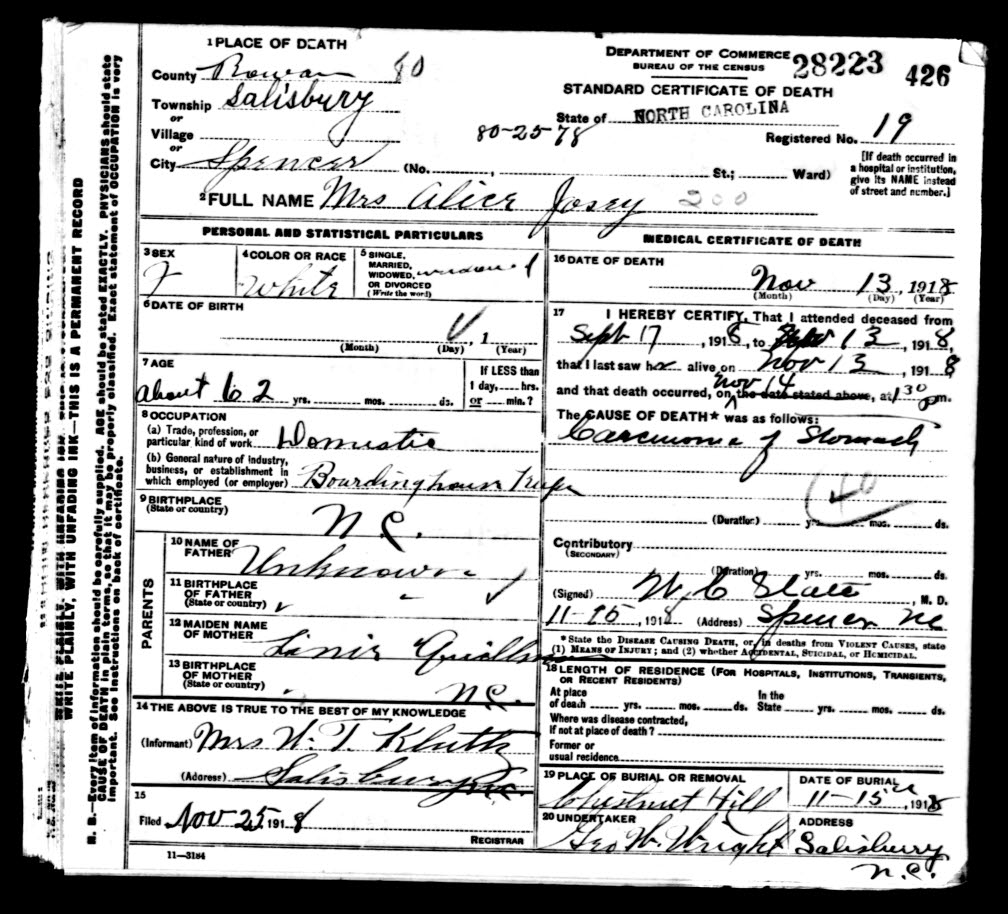 N. B.—Every item of information should be carefully supplied. AGE should be stated EXACTLY. PHYSICIANS should state
CAUSE OF DEATH in plain terms, so that it may be properly classified. Exact statement of OCCUPATION is very
important. See instructions on back of certificate.
WRITE PLAINLY, WITH UNFADING INK—THIS IS A PERMANENT RECORD
1 PLACE OF DEATH
County Rowan 80
Township Salisbury
or
Village
or
City Spencer (No. , St.; Ward)
DEPARTMENT OF COMMERCE
BUREAU OF THE CENSUS
28223 426
STANDARD CERTIFICATE OF DEATH
State of NORTH CAROLINA
80-25-78
Registered No. 19
[If death occurred in
a hospital or institution,
give its NAME instead
of street and number.]
2 FULL NAME Mrs Alice Josey 200
PERSONAL AND STATISTICAL PARTICULARS
3 SEX
F
4 COLOR OR RACE
White
5 SINGLE,
MARRIED,
WIDOWED,
OR DIVORCED
(Write the word)
widowed
6 DATE OF BIRTH
, 1
(Month) (Day) (Year)
7 AGE
about 62 yrs. mos. ds.
If LESS than
1 day, hrs.
or min.?
8 OCCUPATION
(a) Trade, profession, or
particular kind of work Domestic
(b) General nature of industry,
business, or establishment in
which employed (or employer) Boardinghouse Keeper
9 BIRTHPLACE
(State or country)
N.C.
PARENTS
10 NAME OF
FATHER Unknown
11 BIRTHPLACE
OF FATHER
(State or country)
12 MAIDEN NAME
OF MOTHER
13 BIRTHPLACE
OF MOTHER
(State or country)
N.C.
14 THE ABOVE IS TRUE TO THE BEST OF MY KNOWLEDGE
(Informant) Mrs W. T. Kluttz
(Address) Salisbury N.C.
15
Filed Nov 25, 1918
REGISTRAR
11—3184
MEDICAL CERTIFICATE OF DEATH
16 DATE OF DEATH
Nov 13, 1918
(Month) (Day) (Year)
17 I HEREBY CERTIFY, That I attended deceased from
Sept 17, 1918, to Nov 13, 1918,
that I last saw her alive on Nov 13, 1918
Nov 14
and that death occurred, on the date stated above, at 1 30 pm.
The CAUSE OF DEATH* was as follows:
Carcinoma of Stomach
40
(Duration) yrs. mos. ds.
Contributory
(SECONDARY)
(Duration) yrs. mos. ds.
(Signed) , M. D.
11-15, 1918 (Address) Spencer NC
*State the DISEASE CAUSING DEATH, or, in deaths from VIOLENT CAUSES, state
(1) MEANS OF INJURY; and (2) whether ACCIDENTAL, SUICIDAL, or HOMICIDAL.
18 LENGTH OF RESIDENCE (FOR HOSPITALS, INSTITUTIONS, TRANSIENTS,
OR RECENT RESIDENTS)
At place
of death yrs. mos. ds.
In the
State yrs. mos. ds.
Where was disease contracted,
if not at place of death?
Former or
usual residence
19 PLACE OF BURIAL OR REMOVAL
Chestnut Hill
DATE OF BURIAL
11-15, 1918
20 UNDERTAKER
Geo W. Wright
ADDRESS
Salisbury
N.C.